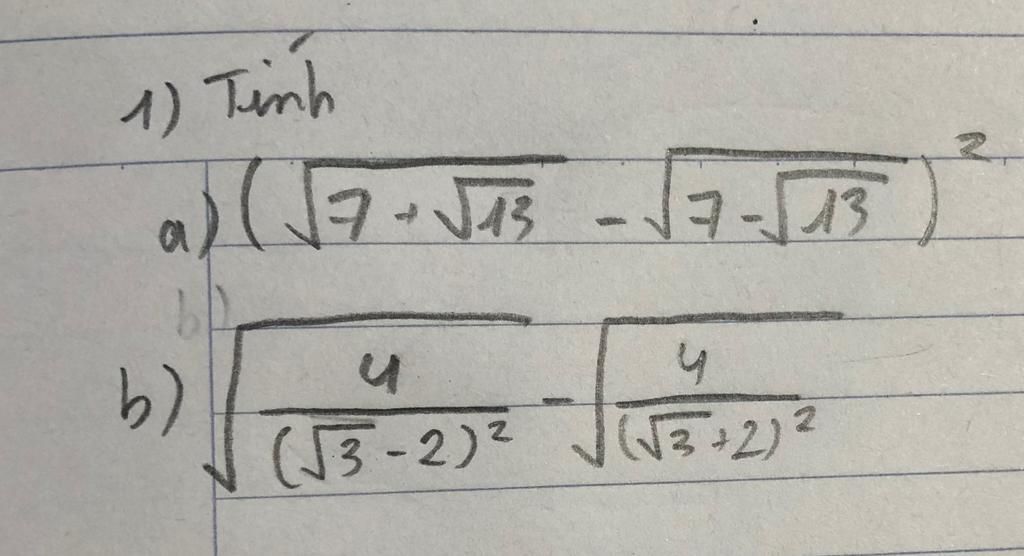 1) Tính
a) (√(7 + √13) - √(7 - √13))²
b)
b) √(4/(√3 - 2)²) - √(4/(√3 + 2)²)